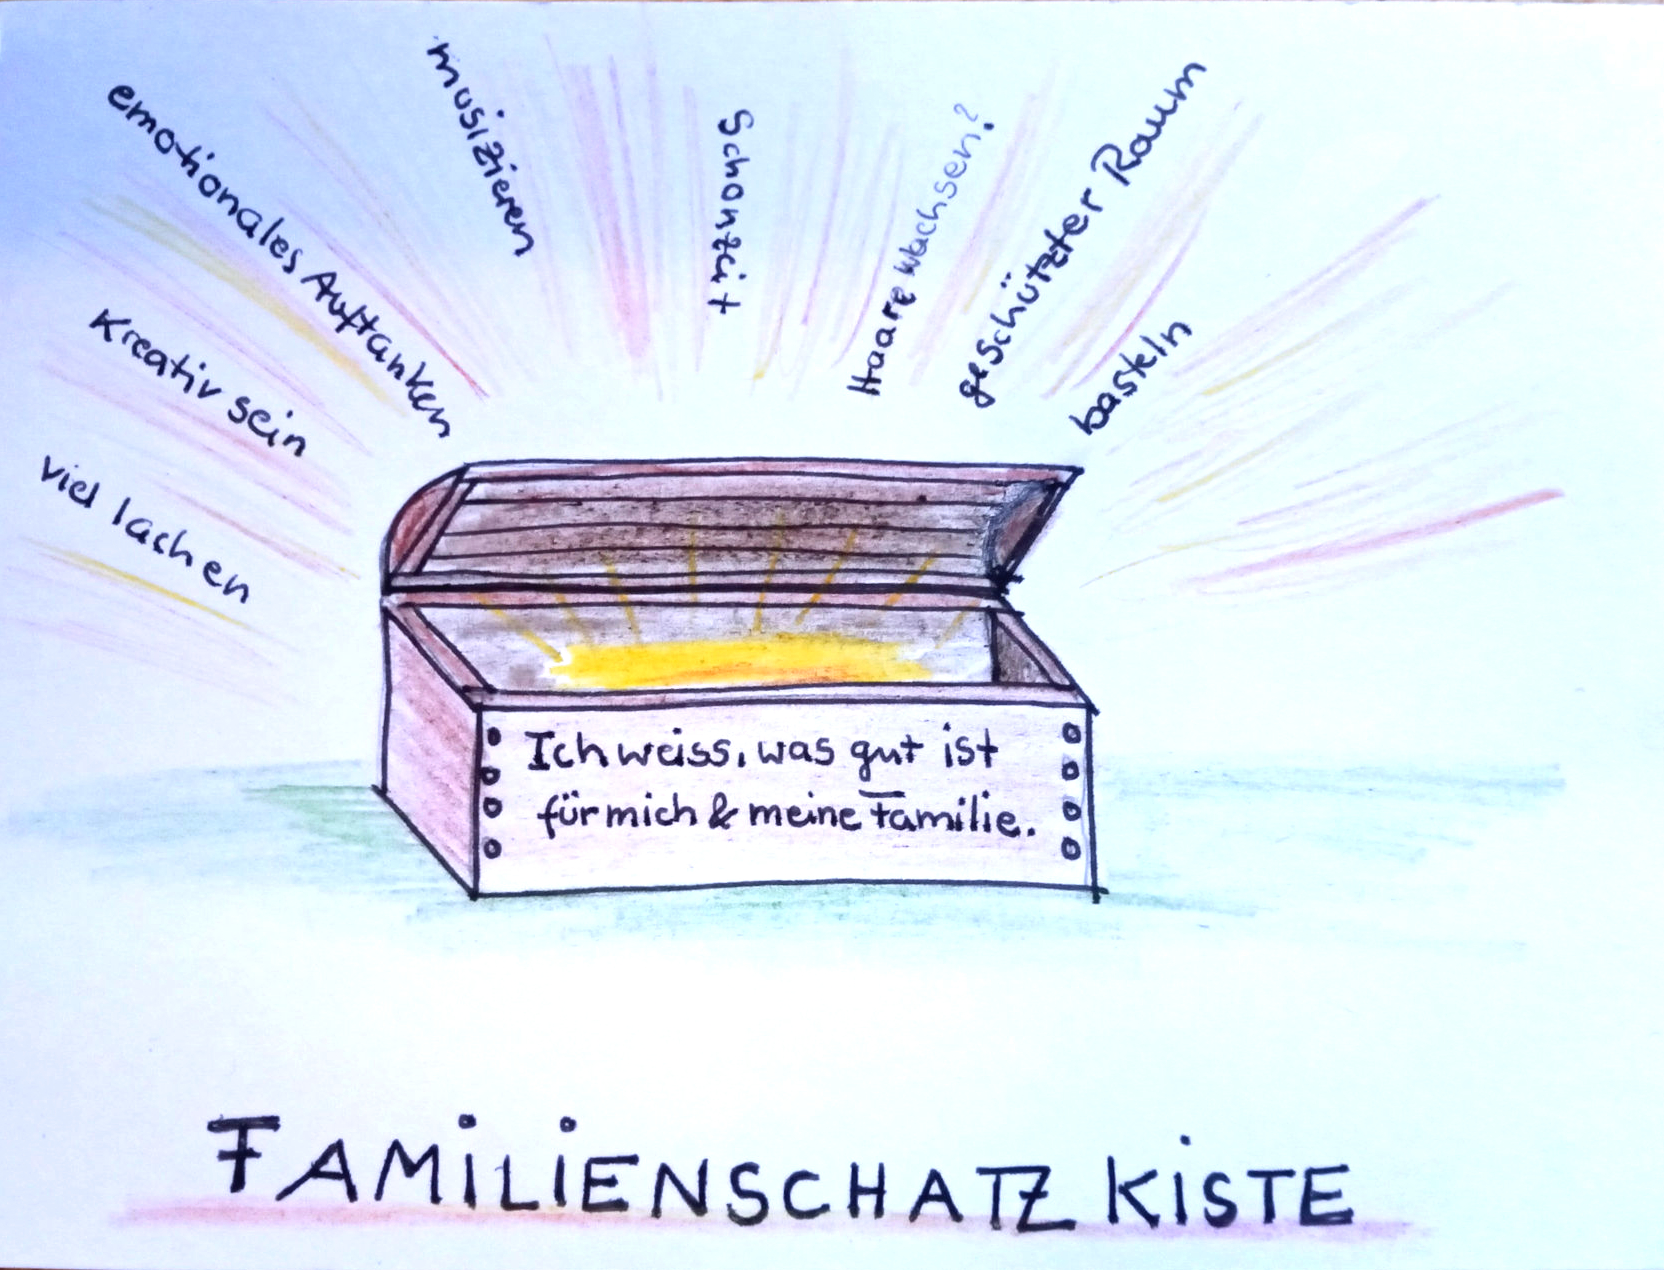 viel lachen
kreativ sein
emotionales Auftanken
musizieren
Schonzeit
Haare wachsen?
geschützter Raum
basteln
Ich weiss, was gut ist
für mich & meine Familie.
FAMiLiENSCHATZ KiSTE